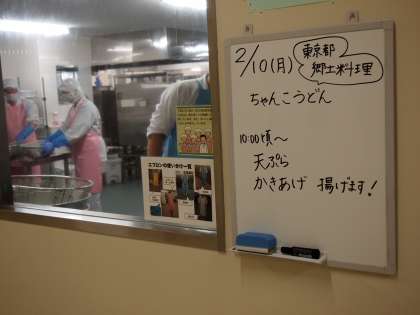 2/10(月) 東京都
郷土料理
ちゃんこうどん
10:00頃〜
天ぷら
かきあげ 揚げます!
エプロンの使い分け一覧